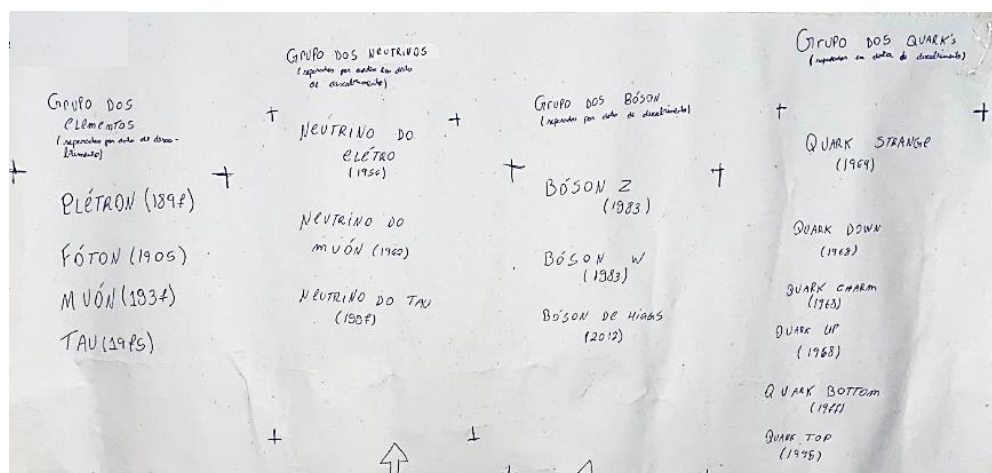 GRUPO DOS
ELEMENTOS
(separados por data de desco-
brimento)
ELÉTRON (1897)
FÓTON (1905)
MUÓN (1937)
TAU (1975)
GRUPO DOS NEUTRINOS
(separados por data
de descobrimento)
NEUTRINO DO
ELÉTRO
(1956)
NEUTRINO DO
MUÓN (1962)
NEUTRINO DO TAU
(1997)
GRUPO DOS BÓSON
(separados por data de descobrimento)
BÓSON Z
(1983)
BÓSON W
(1983)
BÓSON DE HIGGS
(2012)
GRUPO DOS QUARK'S
(separados em data de descobrimento)
QUARK STRANGE
(1964)
QUARK DOWN
(1968)
QUARK CHARM
(1968)
QUARK UP
(1968)
QUARK BOTTOM
(1977)
QUARK TOP
(1995)